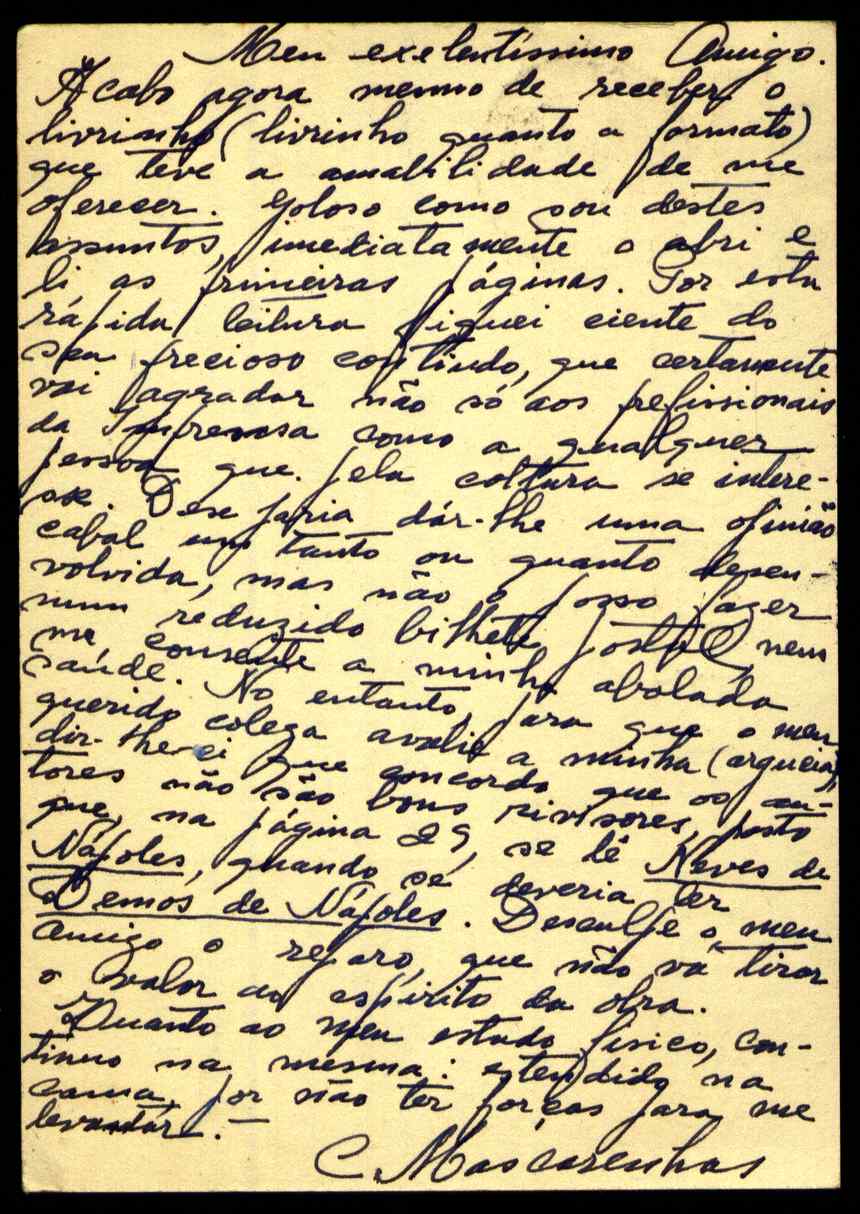 Meu exelentíssimo Amigo.
Acabo agora mesmo de receber o
livrinho (livrinho quanto a formato)
que teve a amabilidade de me
oferecer. Goloso como sou destes
assuntos, imediatamente o abri e
li as primeiras páginas. Por esta
rápida leitura fiquei ciente do
seu precioso contiudo, que certamente
vai agradar não só aos profissionais
da Imprensa como a qualquer
pessoa que pela cultura se intere-
sse. Desejaria dár-lhe uma opinião
cabal um tanto ou quanto desen-
volvida, mas não o posso fazer
num reduzido bilhete postal, nem
me consente a minha abalada
saúde. No entanto, para que o meu
querido colega avalie a minha (argueia),
dir-lhe-ei que concordo que os au-
tores não são bons rivisores, posto
que, na página 29, se lê Neves de
Nápoles, quando se deveria ler
Demos de Nápoles. Desculpe o meu
amigo o reparo, que não vá tirar
o valor ao espírito da obra.
Quanto ao meu estado fisico, con-
tinuo na mesma: estendido na
cama, por não ter forças para me
levantár.—
C. Mascarenhas